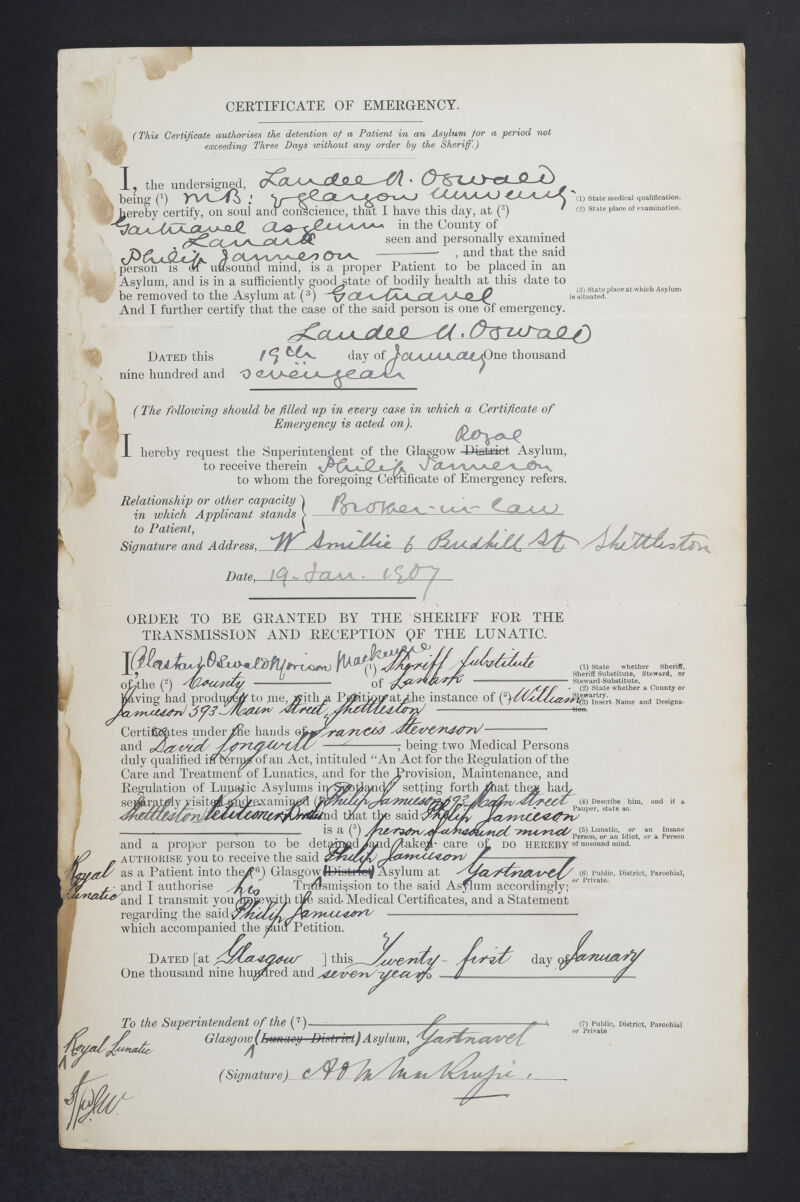 CERTIFICATE OF EMERGENCY.
(This Certificate authorises the detention of a Patient in an Asylum for a period not
exceeding Three Days without any order by the Sheriff.)
I, the undersigned, Landel R. Oswald
being (¹) M.B; Glasgow University
(1) State medical qualification.
hereby certify, on soul and conscience, that I have this day, at (²)
(2) State place of examination.
Gartnavel Asylum in the County of
Lanark seen and personally examined
Philip Jamieson , and that the said
person is of unsound mind, is a proper Patient to be placed in an
Asylum, and is in a sufficiently good state of bodily health at this date to
be removed to the Asylum at (³) Gartnavel
(3) State place at which Asylum
is situated.
And I further certify that the case of the said person is one of emergency.
Landel R. Oswald
DATED this 19th day of January One thousand
nine hundred and seven years
(The following should be filled up in every case in which a Certificate of
Emergency is acted on).
Royal
I hereby request the Superintendent of the Glasgow District Asylum,
to receive therein Philip Jamieson
to whom the foregoing Certificate of Emergency refers.
Relationship or other capacity
in which Applicant stands
to Patient,
Brother-in-law
Signature and Address, W Smillie 6 Budhill St Shettleston
Date, 19. Jan. 1907
ORDER TO BE GRANTED BY THE SHERIFF FOR THE
TRANSMISSION AND RECEPTION OF THE LUNATIC.
I, Alastair Oswald Morison Mackenzie (¹) Sheriff Substitute
(1) State whether Sheriff,
Sheriff Substitute, Steward, or
Steward-Substitute.
of the (²) County of Lanark
(2) State whether a County or
Stewartry.
having had produced to me, with a Petition at the instance of (³) William
(3) Insert Name and Designation.
Jamieson 593 Main Street, Shettleston
Certificates under the hands of Francis Stevenson
and David Longwill , being two Medical Persons
duly qualified in terms of an Act, intituled "An Act for the Regulation of the
Care and Treatment of Lunatics, and for the Provision, Maintenance, and
Regulation of Lunatic Asylums in Scotland," setting forth that they had
separately visited and examined (⁴) Philip Jamieson 593 Main Street
(4) Describe him, and if a
Pauper, state so.
Shettleston Petitioner's and that the said Philip Jamieson
is a (⁵) person of unsound mind
(5) Lunatic, or an Insane
Person, or an Idiot, or a Person
of unsound mind.
and a proper person to be detained and taken care of, DO HEREBY
AUTHORISE you to receive the said Philip Jamieson
Royal
Lunatic
as a Patient into the (⁶) Glasgow (District) Asylum at Gartnavel
(6) Public, District, Parochial,
or Private.
and I authorise his Transmission to the said Asylum accordingly;
and I transmit you herewith the said Medical Certificates, and a Statement
regarding the said Philip Jamieson
which accompanied the said Petition.
DATED [at Glasgow ] this Twenty-first day of January
One thousand nine hundred and seven years
To the Superintendent of the (⁷)
(7) Public, District, Parochial
or Private
Royal Lunatic
Glasgow (Lunacy District) Asylum, Gartnavel
(Signature) A O M Mackenzie.